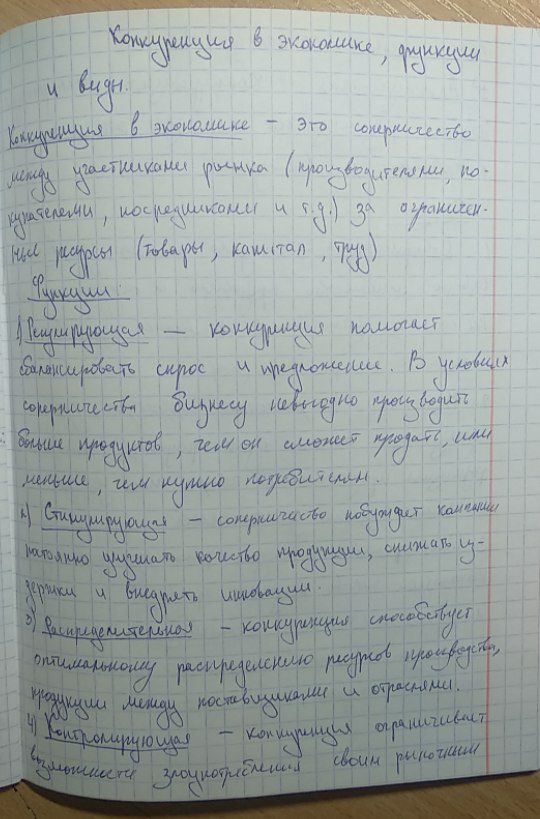 Конкуренция в экономике, функции
и виды.
Конкуренция в экономике – это соперничество
между участниками рынка (производителями, по-
купателями, посредниками и т.д.) за ограничен-
ные ресурсы (товары, капитал, труд)
Функции:
1) Регулирующая – конкуренция помогает
сбалансировать спрос и предложение. В условиях
соперничества бизнесу невыгодно производить
больше продуктов, чем он сможет продать, или
меньше, чем нужно потребителям.
2) Стимулирующая – соперничество побуждает компании
постоянно улучшать качество продукции, снижать из-
держки и внедрять инновации.
3) Распределительная – конкуренция способствует
оптимальному распределению ресурсов производства,
продукции между поставщиками и отраслями.
4) Контролирующая – конкуренция ограничивает
возможности злоупотребления своим рыночным